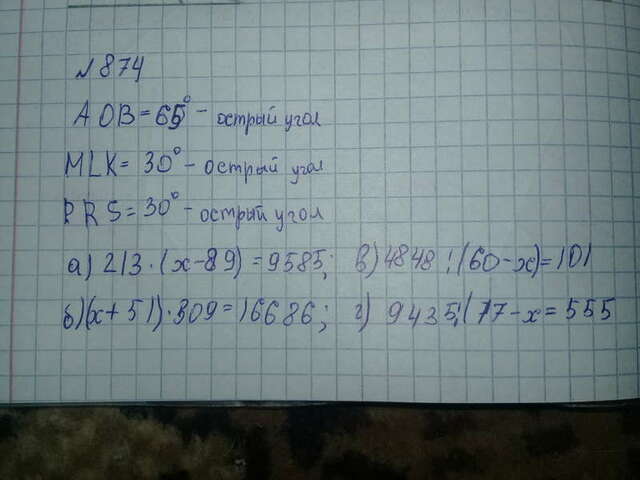 № 874
AOB = 65° - острый угол
MLK = 30° - острый угол
PRS = 30° - острый угол
а) 213 · (x - 89) = 9585; в) 4848 : (60 - x) = 101
б) (x + 5) · 309 = 16686; г) 9435 : (77 - x = 555